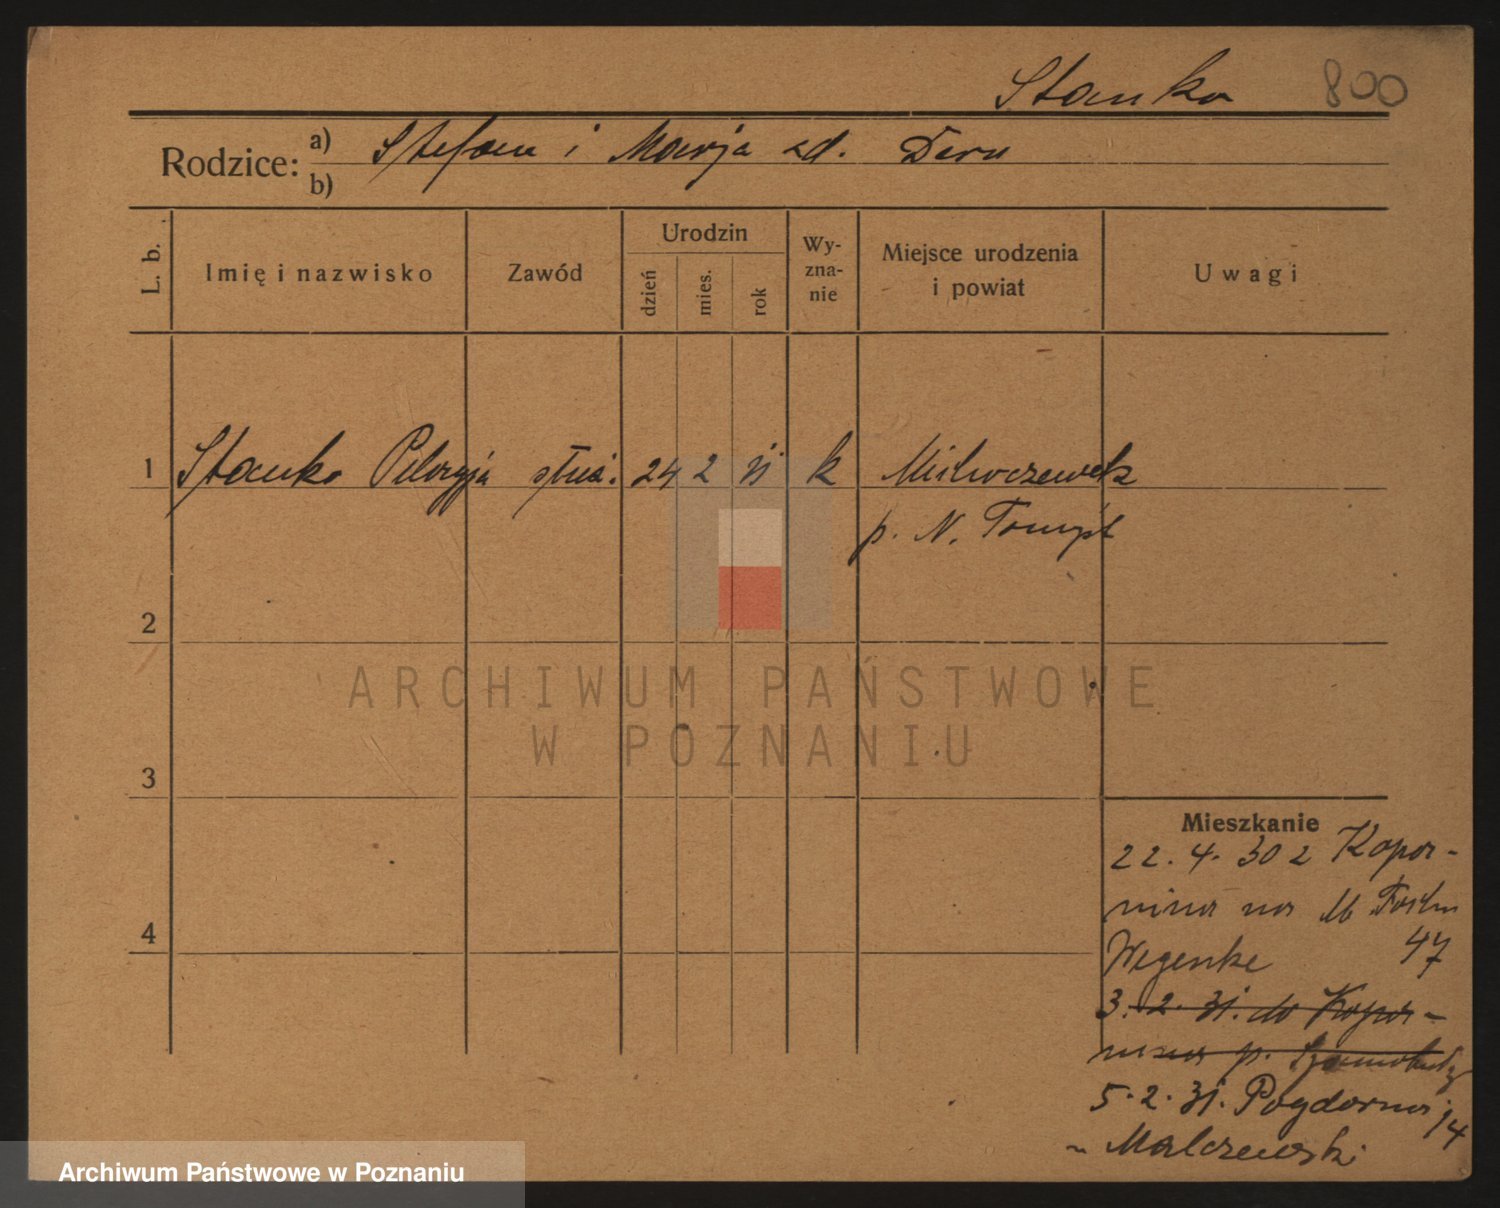 Stanko 800
Rodzice: a) Stefan i Marja zd. Deru
b)
L. b. Imię i nazwisko Zawód Urodzin dzień mies. rok Wy-zna-nie Miejsce urodzenia i powiat Uwagi
1 Stanko Pelagja służ. 24 2 11 k
p. N. Tomyśl
2
ARCHIWUM PAŃSTWOWE
W POZNANIU
3
Mieszkanie
22. 4. 30 z Kopa-
nina na
4 47
3. 2. 31. do Kopa-
nina p. Szamotuły
5. 2. 31. Pogdorna 14
Malczewski
Archiwum Państwowe w Poznaniu